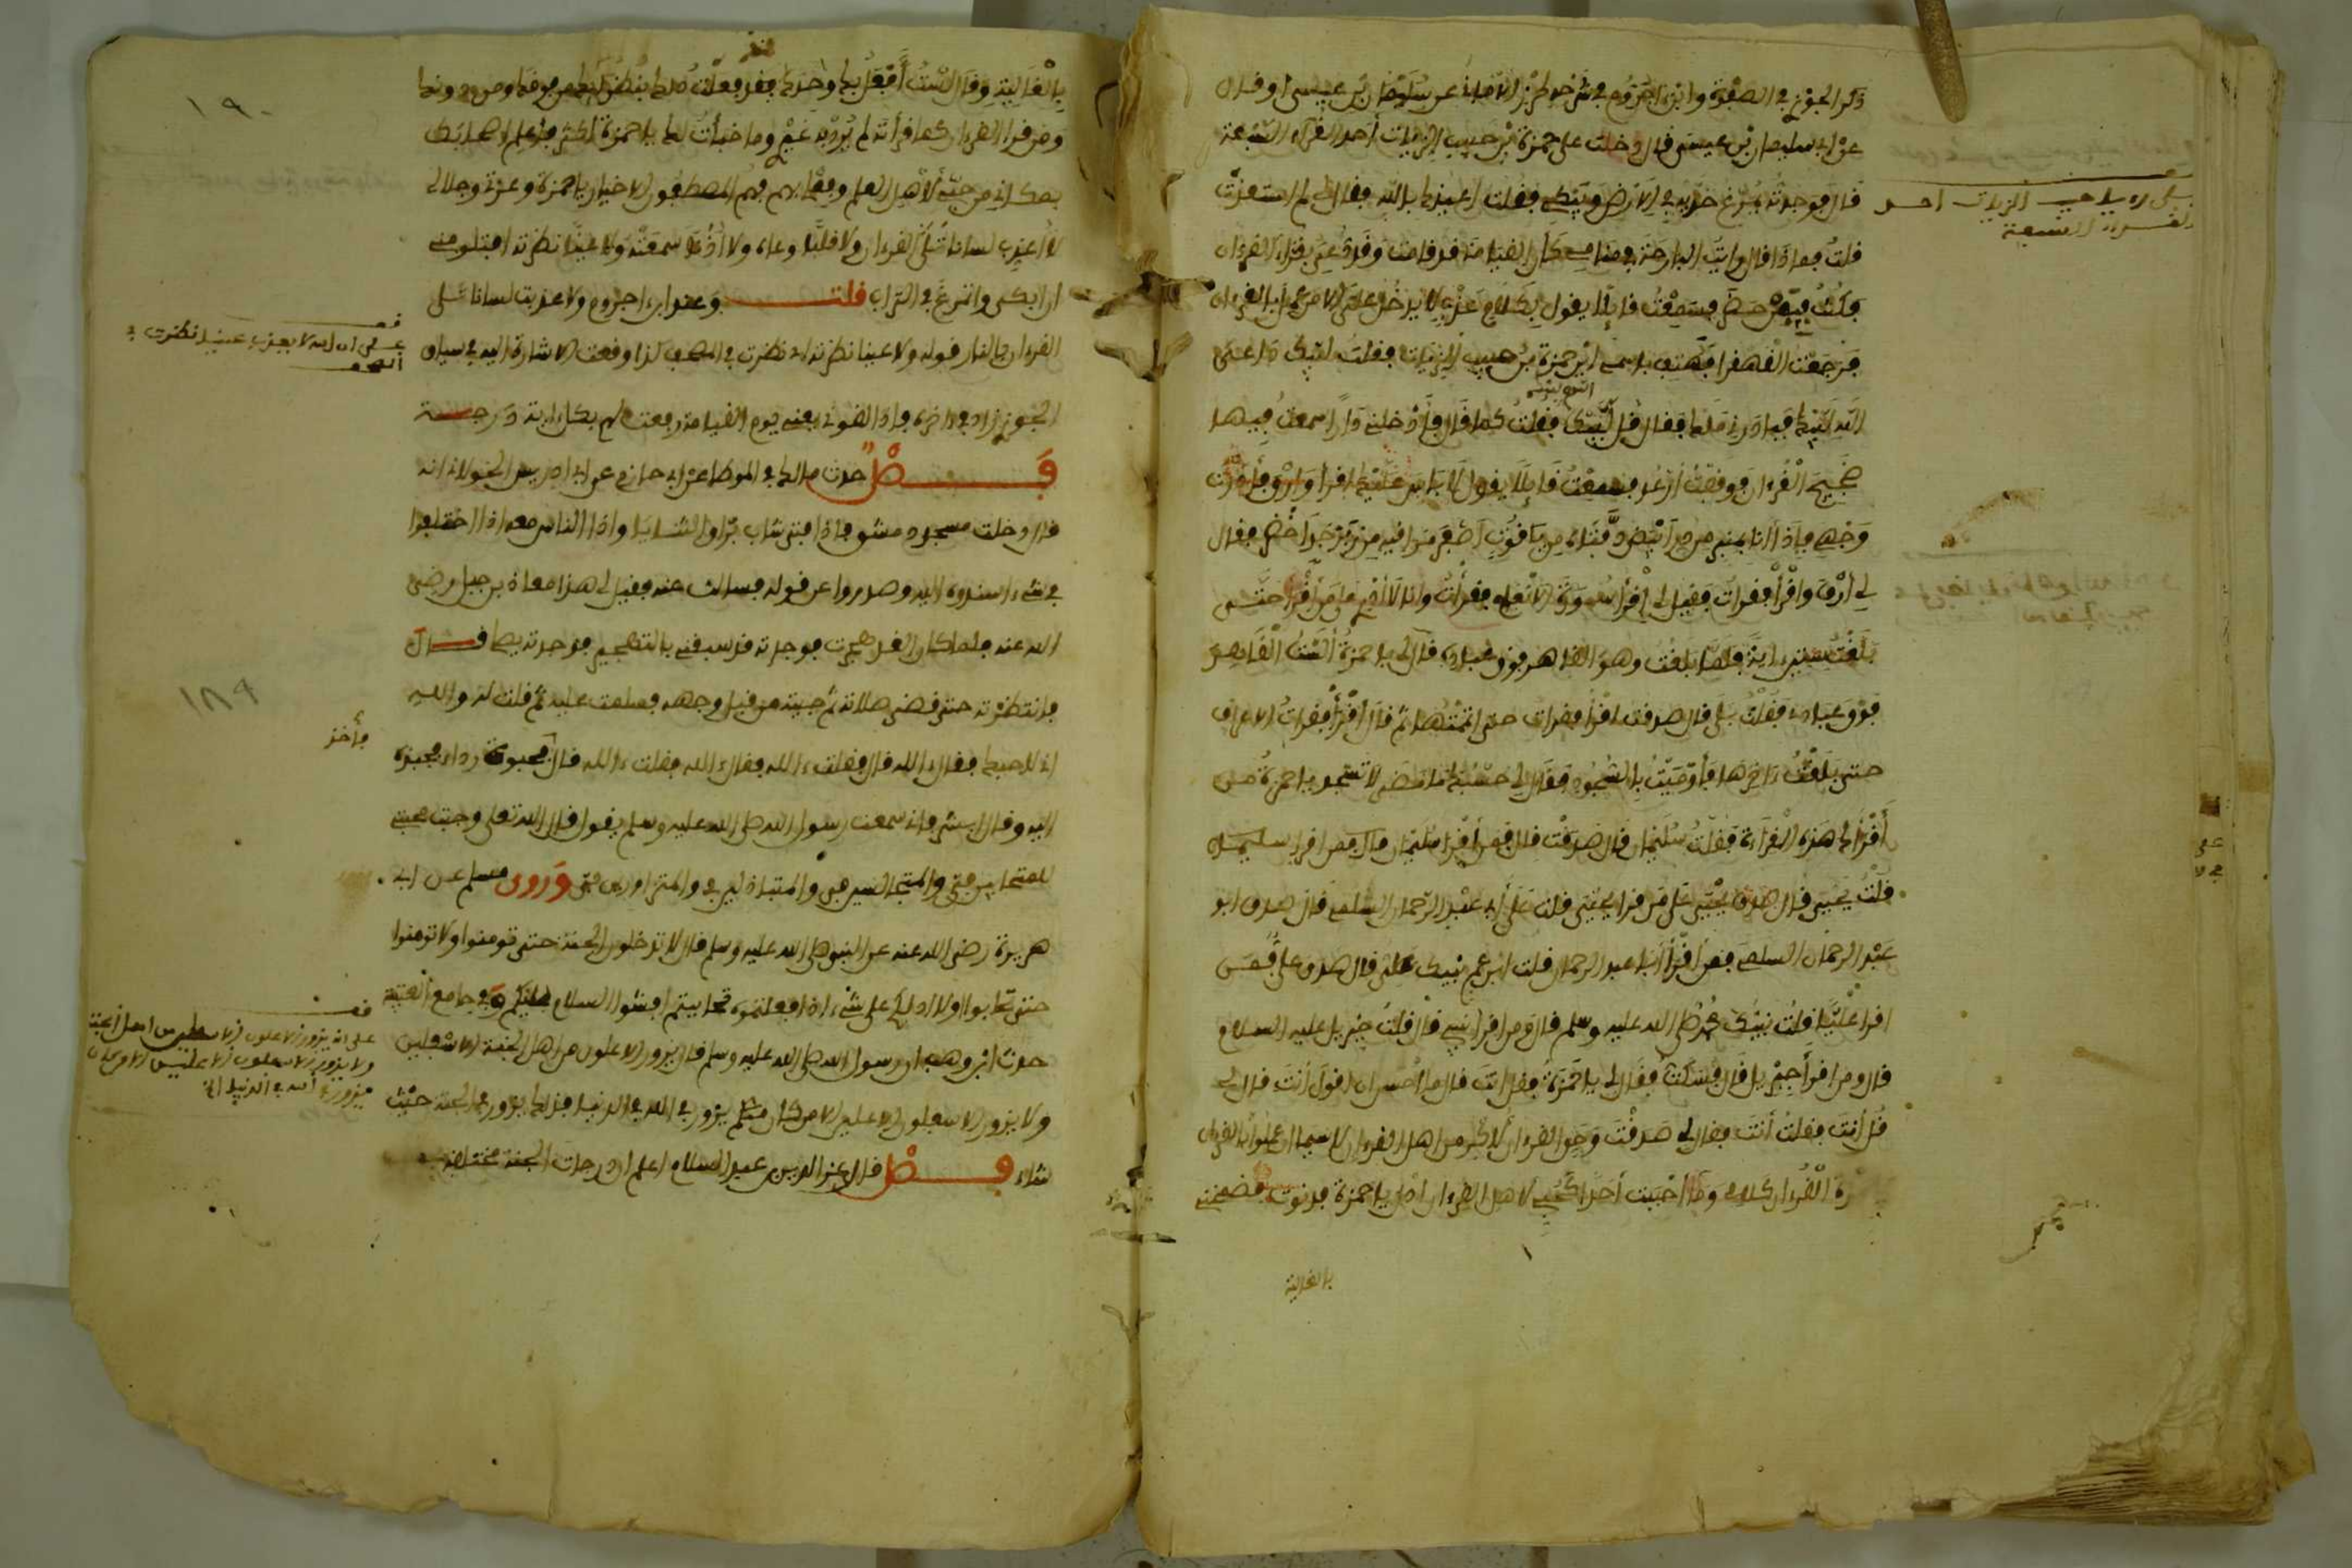 ذكر الجوزي في الصفوة وابن اجروم في شرحه لحرز الاماني عن سليمان بن عيسى او قال
عن ابي سليمان بن عيسى قال دخلت على حمزة بن حبيب الزيات أحد القراء السبعة
قال فوجدته يمرغ خديه في الارض ويبكي فقلت اعيذك بالله فقال لي لم استعذت
قلت فماذا قال رايت البارحة في منامي كان القيامة قد قامت وقد دعي بقراء القرءان
فكنت فيمن حضر فسمعت قائلا يقول بكلام عذب لا يدخل علي الا من عمل بالقرءان
فرجعت القهقرا فهتف باسمي اين حمزة بن حبيب الزيات فقلت لبيك داعي
الله لبيك فبادرني ملك فقال قل لبيك اللهم لبيك فقلت كما قال فأدخلني دارا سمعت فيها
ضجيج القرءان فوقفت أرعد فسمعت قائلا يقول لا باس عليك اقرأ وارق فأدرت
وجهي فإذا انا بمنبر من در أبيض دفتاه من ياقوت أصفر مراقيه من زبرجد أخضر فقال
لي ارق واقرأ فقرأت فقيل لي اقرأ سورة الانعام فقرأت وانا لا أدري على من أقرأ حتى
بلغت ستين ءاية فلما بلغت وهو القاهر فوق عباده قال لي يا حمزة ألست القاهر
فوق عبادي فقلت بلى قال صدقت اقرأ فقرات حتى اتممتها ثم قال اقرأ فقرأت الاعراف
حتى بلغت ءاخرها فأوميت بالسجود فقال لي حسبك ما مضى لا تسجد يا حمزة من
أقرأك هذه القراءة فقلت سليمان قال صدقت قال فمن أقرأ سليمان قال فمن اقرا سليمان
قلت يحيى قال صدق يحيى على من قرا يحيى قلت على أبي عبد الرحمان السلمي قال صدق ابو
عبد الرحمان السلمي فمن أقرأ أبا عبد الرحمان قلت ابن عم نبيك علي قال صدق علي فمن
اقرا عليا قلت نبيك محمد صلى الله عليه وسلم قال ومن اقرا نبيي قال قلت جبريل عليه السلام
قال ومن اقرأ جبريل قال فسكت فقال لي يا حمزة قل انت قال ما احسن ان اقول أنت قال لي
قل أنت فقلت أنت فقال لي صدقت وحق القرءان لأكرمن اهل القرءان لا سيما ان عملوا بالقرءان
القرءان كلامي وما أحببت أحدا كحبي لاهل القرءان ادن يا حمزة فدنوت فضمخني
بالغالية
بن حبيب الزيات احد
القراء السبعة
بالغالية وقال لست أفعل بك وحدك فقد فعلت ذلك بنظرائك من فوقك ومن دونك
ومن قرا القرءان كما قرأته لم يرد به غيري وما خبأت لك يا حمزة أكثر فأعلم اصحابك
بمكاني من حبي لأهل القرءان وفعلي بهم فهم المصطفون الاخيار يا حمزة وعزتي وجلالي
لا أعذب لسانا تلى القرءان ولا قلبا وعاه ولا أذنا سمعته ولا عينا نظرته افتلومني
ان ابكي واتمرغ في التراب قلت وعند ابن اجروم ولا عذبت لسانا تلى
القرءان بالنار قوله ولا عينا نظرته اي نظرت في المصحف كذا وقعت الاشارة اليه في سياق
الجوزي زاد في ءاخره فاذا لقوني يعني يوم القيامة رفعت لهم بكل ءاية درجة
فصل حدث مالك في الموطا عن ابي حازم عن ابي ادريس الخولاني انه
قال دخلت مسجد دمشق فاذا فتى شاب براق الثنايا واذا الناس معه اذا اختلفوا
في شيء اسندوه اليه وصدروا عن قوله فسالت عنه فقيل لي هذا معاذ بن جبل رضي
الله عنه فلما كان الغد هجرت فوجدته قد سبقني بالتهجير فوجدته يصلي قال
فانتظرته حتى قضى صلاته ثم جيته من قبل وجهه فسلمت عليه ثم قلت له والله
اني لاحبك فقال ءالله قال فقلت ءالله فقال ءالله فقلت ءالله قال فأخذ بحبوة ردائي فجبذني
اليه وقال ابشر فاني سمعت رسول الله صلى الله عليه وسلم يقول قال الله تعلى وجبت محبتي
للمتحابين في والمتجالسين في والمتباذلين في والمتزاورين في وروى مسلم عن ابي
هريرة رضي الله عنه عن النبي صلى الله عليه وسلم قال لا تدخلون الجنة حتى تومنوا ولا تومنوا
حتى تحابوا اولا ادلكم على شيء اذا فعلتموه تحاببتم افشوا السلام بينكم وفي جامع العتبية
حدث ابن وهب ان رسول الله صلى الله عليه وسلم قال يزور الاعلون من اهل الجنة الاسفلين
ولا يزور الاسفلون الاعلين الا من كان منهم يزور في الله في الدنيا فذلك يزور في الجنة حيث
شاء فصل قال عز الدين بن عبد السلام اعلم ان درجات الجنة مختلفة
قف
على ان الله لا يعذب عينا نظرت في
المصحف
فأخذ
قف
على انه يزور الاعلون الاسفلين من اهل الجنة
ولا يزور الاسفلون الاعلين الا من كان
يزور في الله في الدنيا
١٩٠
١٨٩